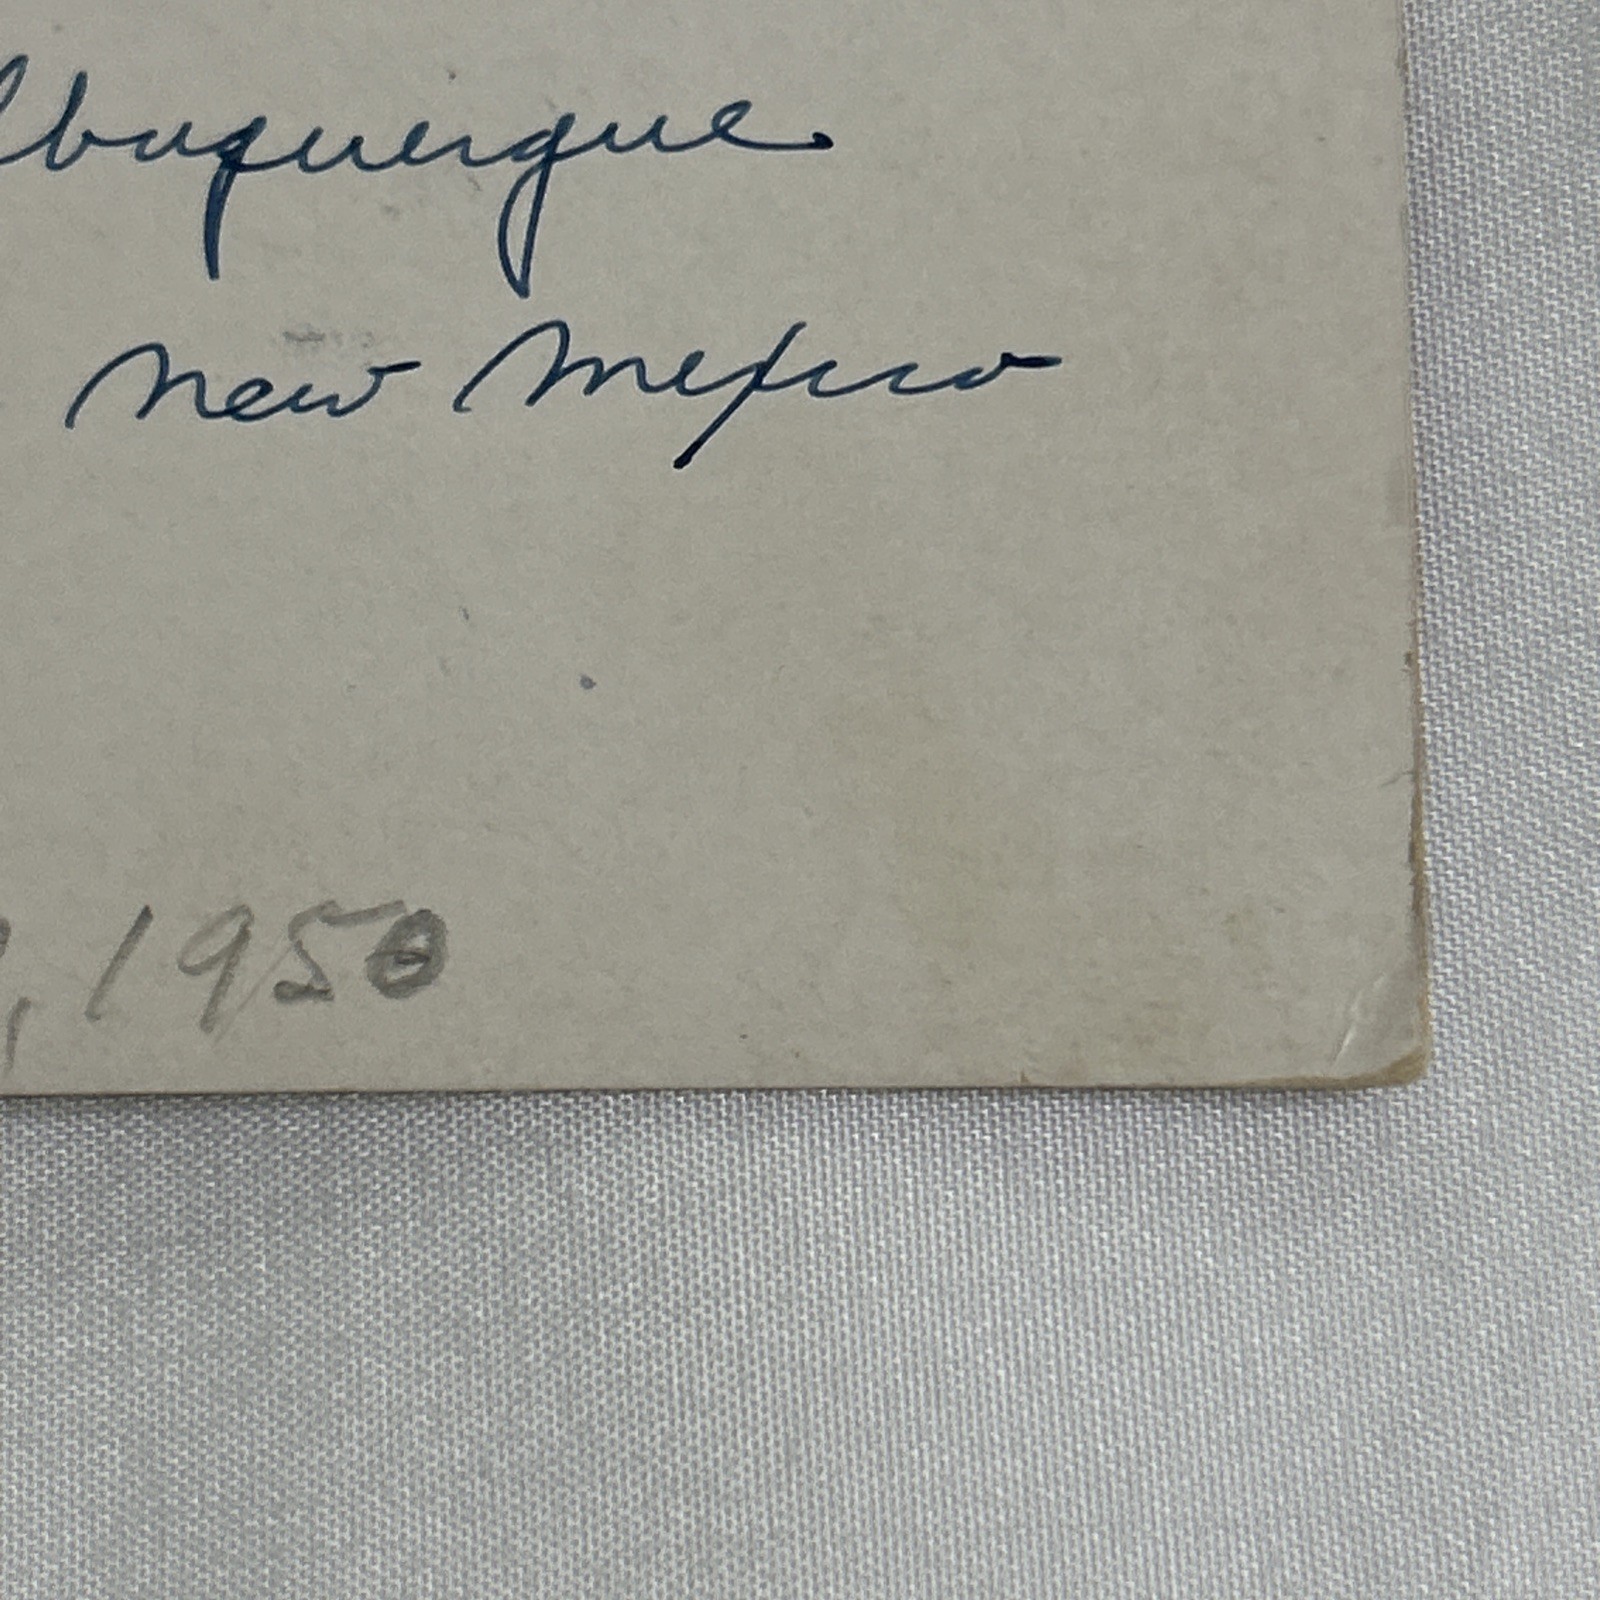 lbuquerque
New Mexico
, 1950